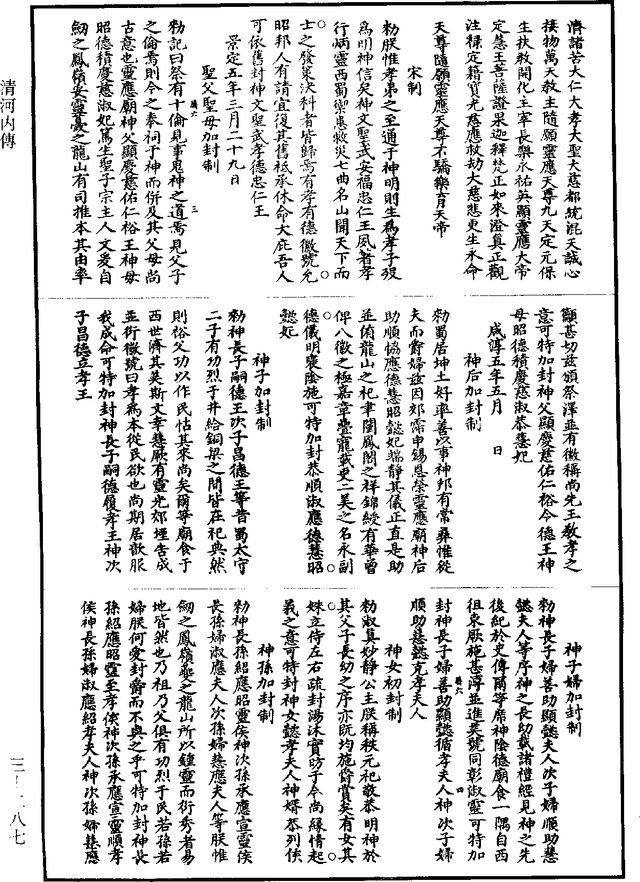 清河內傳
濟諸苦大仁大孝大聖大慈都統混天誠心
接物萬天教主隨願靈應天尊九天定元保
生扶教開化主宰長樂永祐英顯靈應大帝
定慧王菩薩證果迦釋梵正如來澄真正觀
注祿定籍寶光慈應救劫大慈悲更生永命
天尊隨願靈應天尊不驕樂育天帝
宋制
勑朕惟孝弟之至通于神明則生爲孝子歿
爲明神信矣神文聖武安福忠仁王夙著孝
行炳靈西蜀禦患救災七曲名山聞天下而
士之發策決科者皆歸焉有孝有德徽號允
昭邦人有請宣復其舊祗承休命大庇吾人
可依舊封神文聖武孝德忠仁王
景定五年三月二十九日
聖父聖母加封制
勑記曰祭有十倫見事鬼神之道焉見父子
之倫焉則今之奉祠于神而併及其父母尚
古意也靈應廟神父顯慶慈佑仁裕王神母
昭德積慶慈淑妃篤生聖子宗主人文爰自
劒之鳳嶺安靈薨之龍山有司推本其由率
顯甚切玆頒祭澤並有徽稱尚先王教孝之
意可特加封神父顯慶慈佑仁裕令德王神
母昭德積慶慈淑恭慧妃
咸淳五年五月 日
神后加封制
勑蜀居坤土好率善以事神邦有常彞惟從
夫而爵婦玆因郊霈申錫恩榮靈應廟神后
助順協應德慧昭懿妃端靜其儀正直是助
並侑龍山之祀聿闡鳳閣之祥錦綬有華曾
俾八徵之極嘉章疊寵載更二美之名永副
德儀明褒陰施可特加封恭順淑應德慧昭
懿妃
神子加封制
勑神長子嗣德王次子昌德王等昔蜀太守
二子有功烈于井絡銅梁之間皆在祀典然
則裕父功以作民怙其來尚矣爾等廟食于
西世濟其美斯文幸甚厥有靈光郊堙告成
並衍徽號曰孝爲本從民欲也尚期居歆服
我成命可特加封神長子嗣德履孝王神次
子昌德立孝王
神子婦加封制
勑神長子婦善助顯懿夫人次子婦順助慧
懿夫人等序神之長幼載諸禮經見神之先
後紀於史傳爾等席神陰德廟食一隅自西
徂東厥施甚溥並進美號同彰淑靈可特加
封神長子婦善助顯懿循孝夫人神次子婦
順助慧懿克孝夫人
神女初封制
勑淑真妙靜公主朕稱秩元祀敬恭明神於
其父子長幼之序亦旣均施爵賞矣有女其
姝立侍左右疏封湯沐實昉于今尚緣情起
義之意可特封神女懿孝夫人神婿恭列侯
神孫加封制
勑神長孫紹應昭靈侯神次孫承應宣靈侯
長孫婦淑應夫人次孫婦慧應夫人等朕惟
劒之鳳嶺薨之龍山所以鍾靈而衍秀者易
地皆然也乃祖乃父俱有功烈于民若孫若
婦朕何愛封爵而不與之乎可特加封神長
孫紹應昭靈至孝侯神次孫承應宣靈順孝
侯神長孫婦淑應紹孝夫人神次孫婦慧應
三一二八七